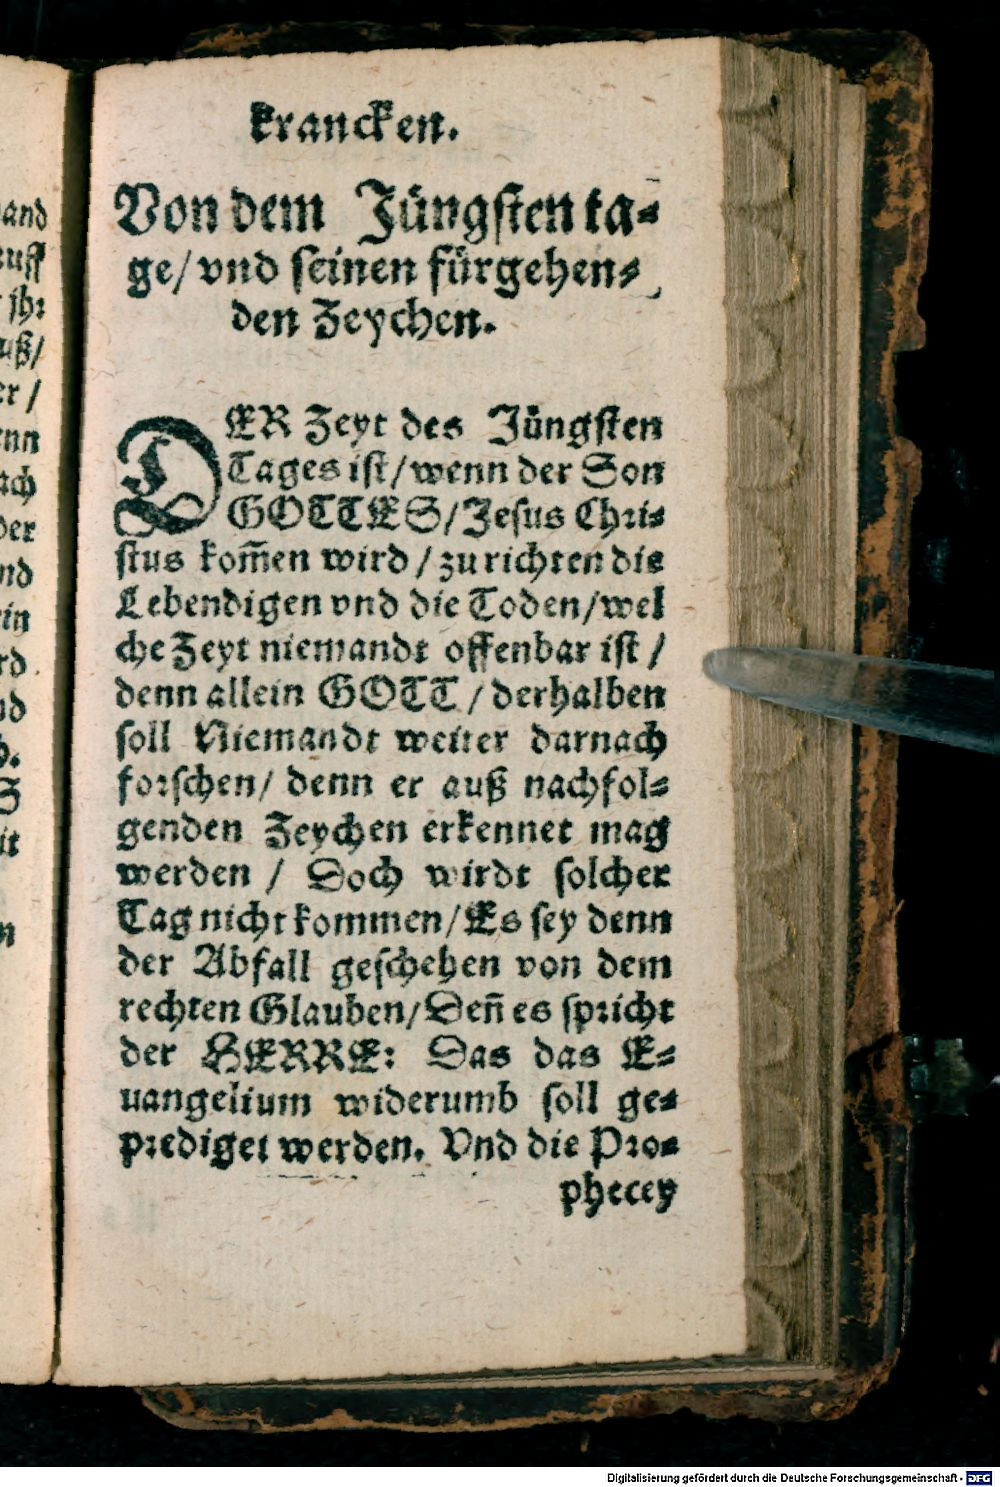 krancken.
Von dem Jüngsten ta-
ge/ vnd seinen fürgehen-
den Zeychen.
DER Zeyt des Jüngsten
Tages ist/ wenn der Son
GOTTES/ Jesus Chri-
stus kom̃en wird/ zu richten die
Lebendigen vnd die Toden/ wel
che Zeyt niemandt offenbar ist/
denn allein GOTT/ derhalben
soll Niemandt weiter darnach
forschen/ denn er auß nachfol-
genden Zeychen erkennet mag
werden/ Doch wirdt solcher
Tag nicht kommen/ Es sey denn
der Abfall geschehen von dem
rechten Glauben/ Deñ es spricht
der HERRE: Das das E-
uangelium widerumb soll ge-
prediget werden. Vnd die Pro-
phecey
and
uff
jhr
uß/
er/
enn
ach
der
nd
in
rd
nd
S
it
n
Digitalisierung gefördert durch die Deutsche Forschungsgemeinschaft - DFG